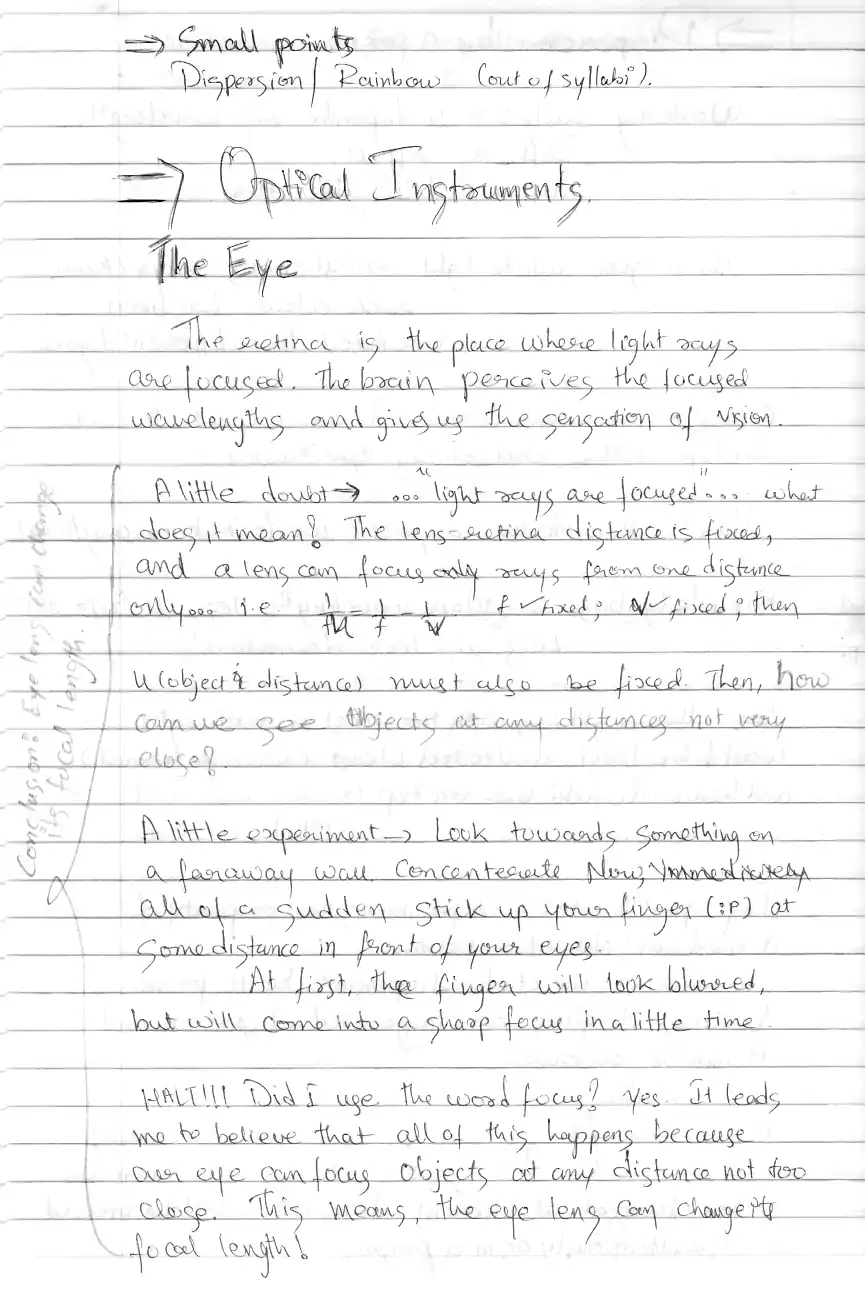 ⇒ Small points
Dispersion/ Rainbow (out of syllabi).
⇒ Optical Instruments.
The Eye
The retina is the place where light rays
are focused. The brain perceives the focused
wavelengths and gives us the sensation of vision.
A little doubt → ... "light rays are focused"... what
does it mean? The lens-retina distance is fixed,
and a lens can focus only rays from one distance
only... i.e. 1/u = 1/f - 1/v f ✓ fixed; v ✓ fixed; then
u (object distance) must also be fixed. Then, how
can we see objects at any distances not very
close?
A little experiment → Look towards something on
a faraway wall Concenterate Now, Immediately
all of a sudden stick up your finger (:P) at
some distance in front of your eyes.
At first, the finger will look blurred,
but will come into a sharp focus in a little time.
HALT!!! Did I use the word focus? Yes. It leads
me to believe that all of this happens because
our eye can focus objects at any distance not too
close. This means, the eye lens can change its
focal length!
Conclusion: Eye lens can change
its focal length.